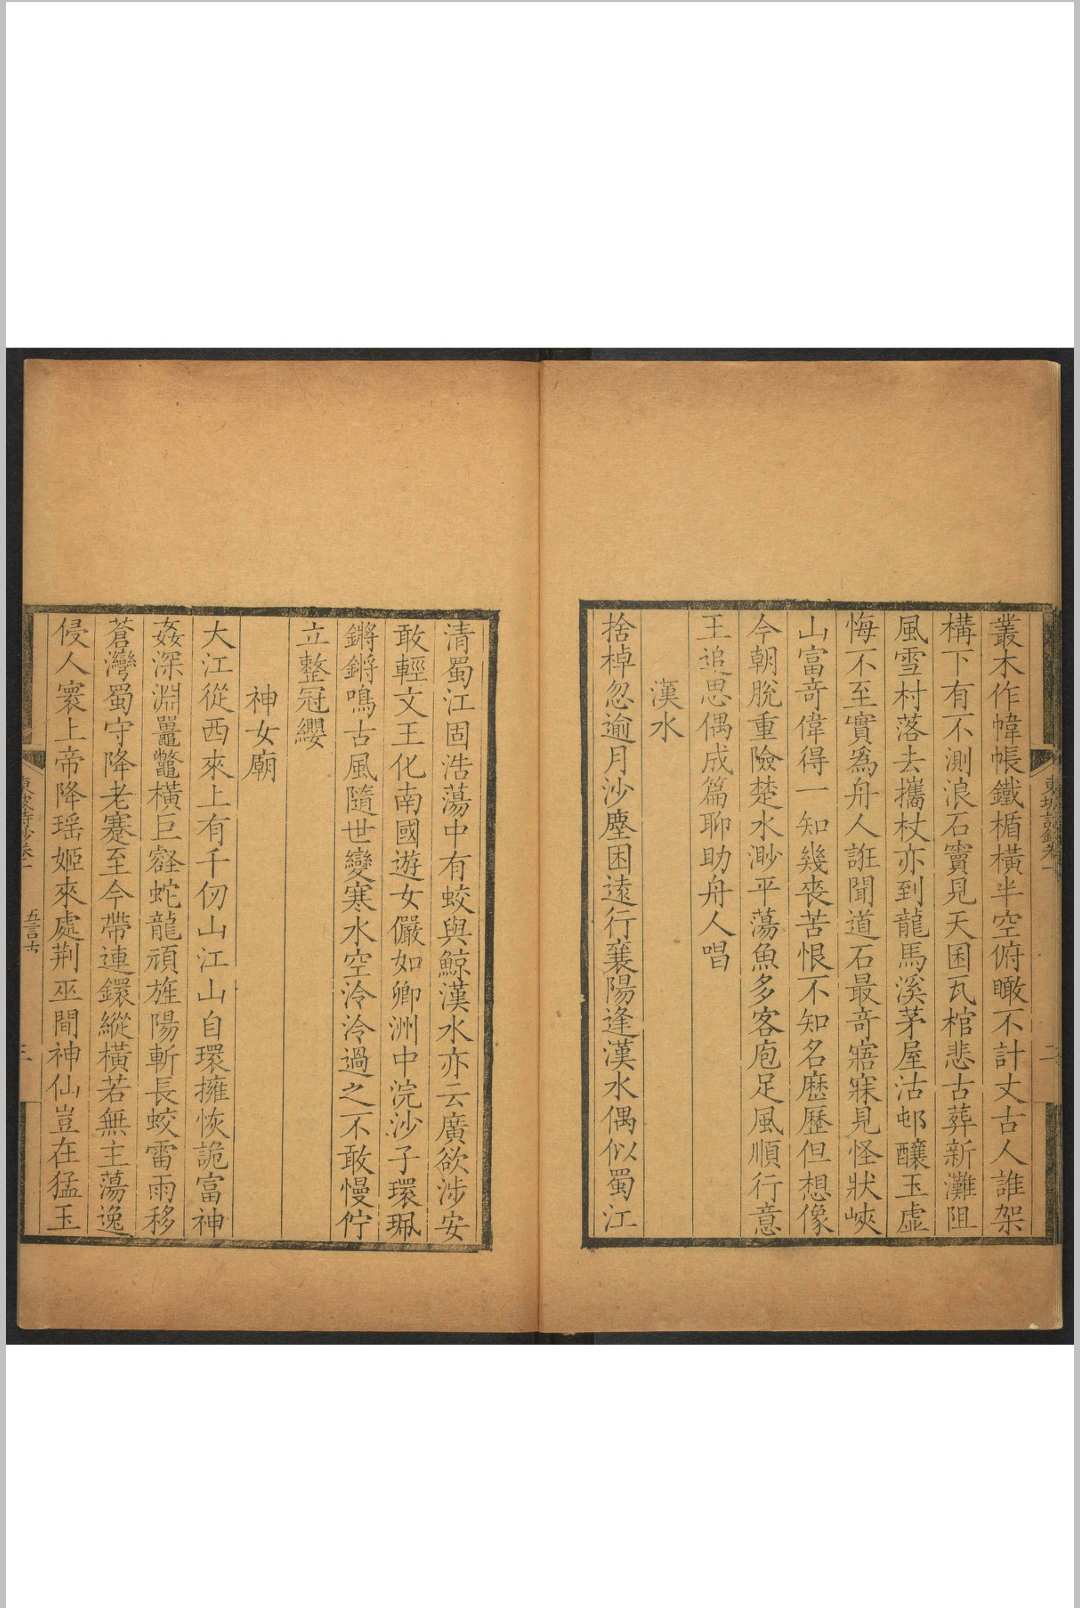 叢木作幃帳鐵楯橫半空俯瞰不計丈古人誰架
構下有不測浪石竇見天囷瓦棺悲古葬新灘阻
風雪村落去攜杖亦到龍馬溪茅屋沽邨釀玉虛
悔不至實為舟人誑聞道石最奇寤寐見怪狀峽
山富奇偉得一知幾喪苦恨不知名歷歷但想像
今朝脫重險楚水渺平蕩魚多客庖足風順行意
王追思偶成篇聊助舟人唱
漢水
捨棹忽逾月沙塵困遠行襄陽逢漢水偶似蜀江
清蜀江固浩蕩中有蛟與鯨漢水亦云廣欲涉安
敢輕文王化南國遊女儼如卿洲中浣沙子環珮
鏘鏘鳴古風隨世變寒水空泠泠過之不敢慢佇
立整冠纓
神女廟
大江從西來上有千仞山江山自環擁恢詭富神
姦深淵鼉鼈橫巨壑蛇龍頑旌陽斬長蛟雷雨移
蒼灣蜀守降老蹇至今帶連鐶縱橫若無主蕩逸
侵人寰上帝降瑤姬來處荆巫間神仙豈在猛玉
東坡詩鈔卷一
五言古